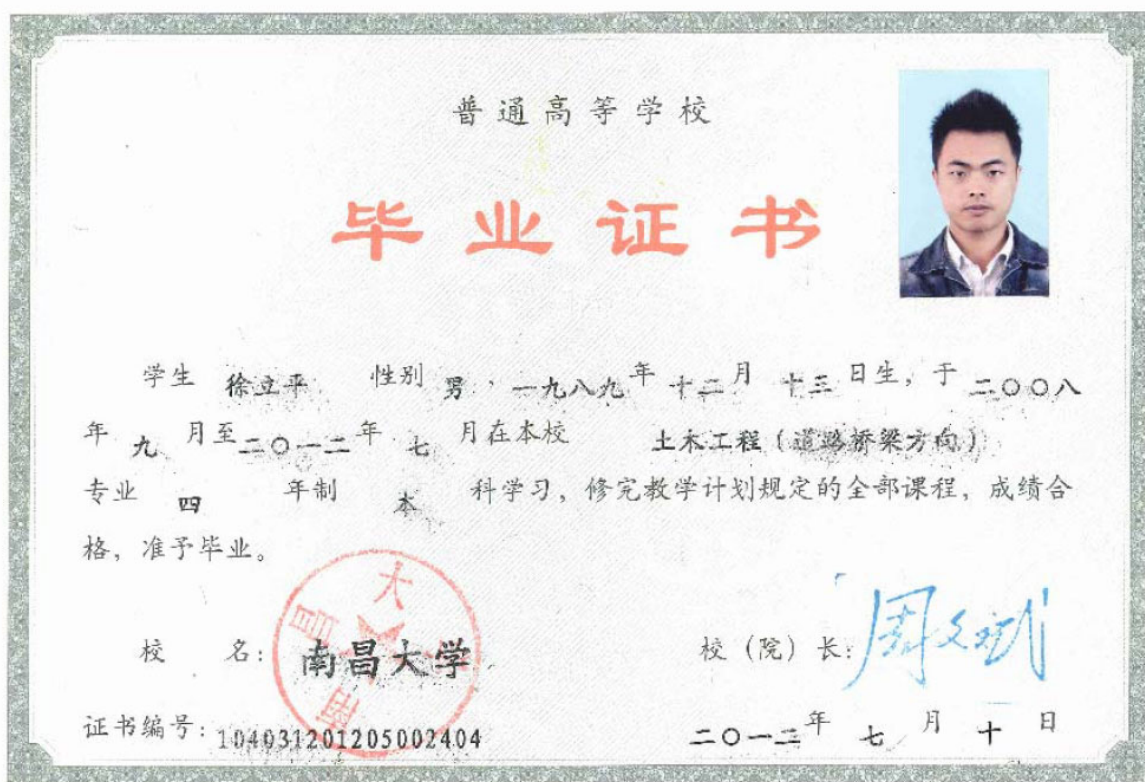 普通高等学校
毕业证书
学生 徐立平 性别 男，一九八九年 十二月 十三日生，于 二〇〇八
年 九 月至二〇一二年 七 月在本校 土木工程（道路桥梁方向）
专业 四 年制 本 科学习，修完教学计划规定的全部课程，成绩合
格，准予毕业。
校 名：南昌大学
南昌大学
校（院）长：周文斌
证书编号：104031201205002404
二〇一二年 七 月 十 日